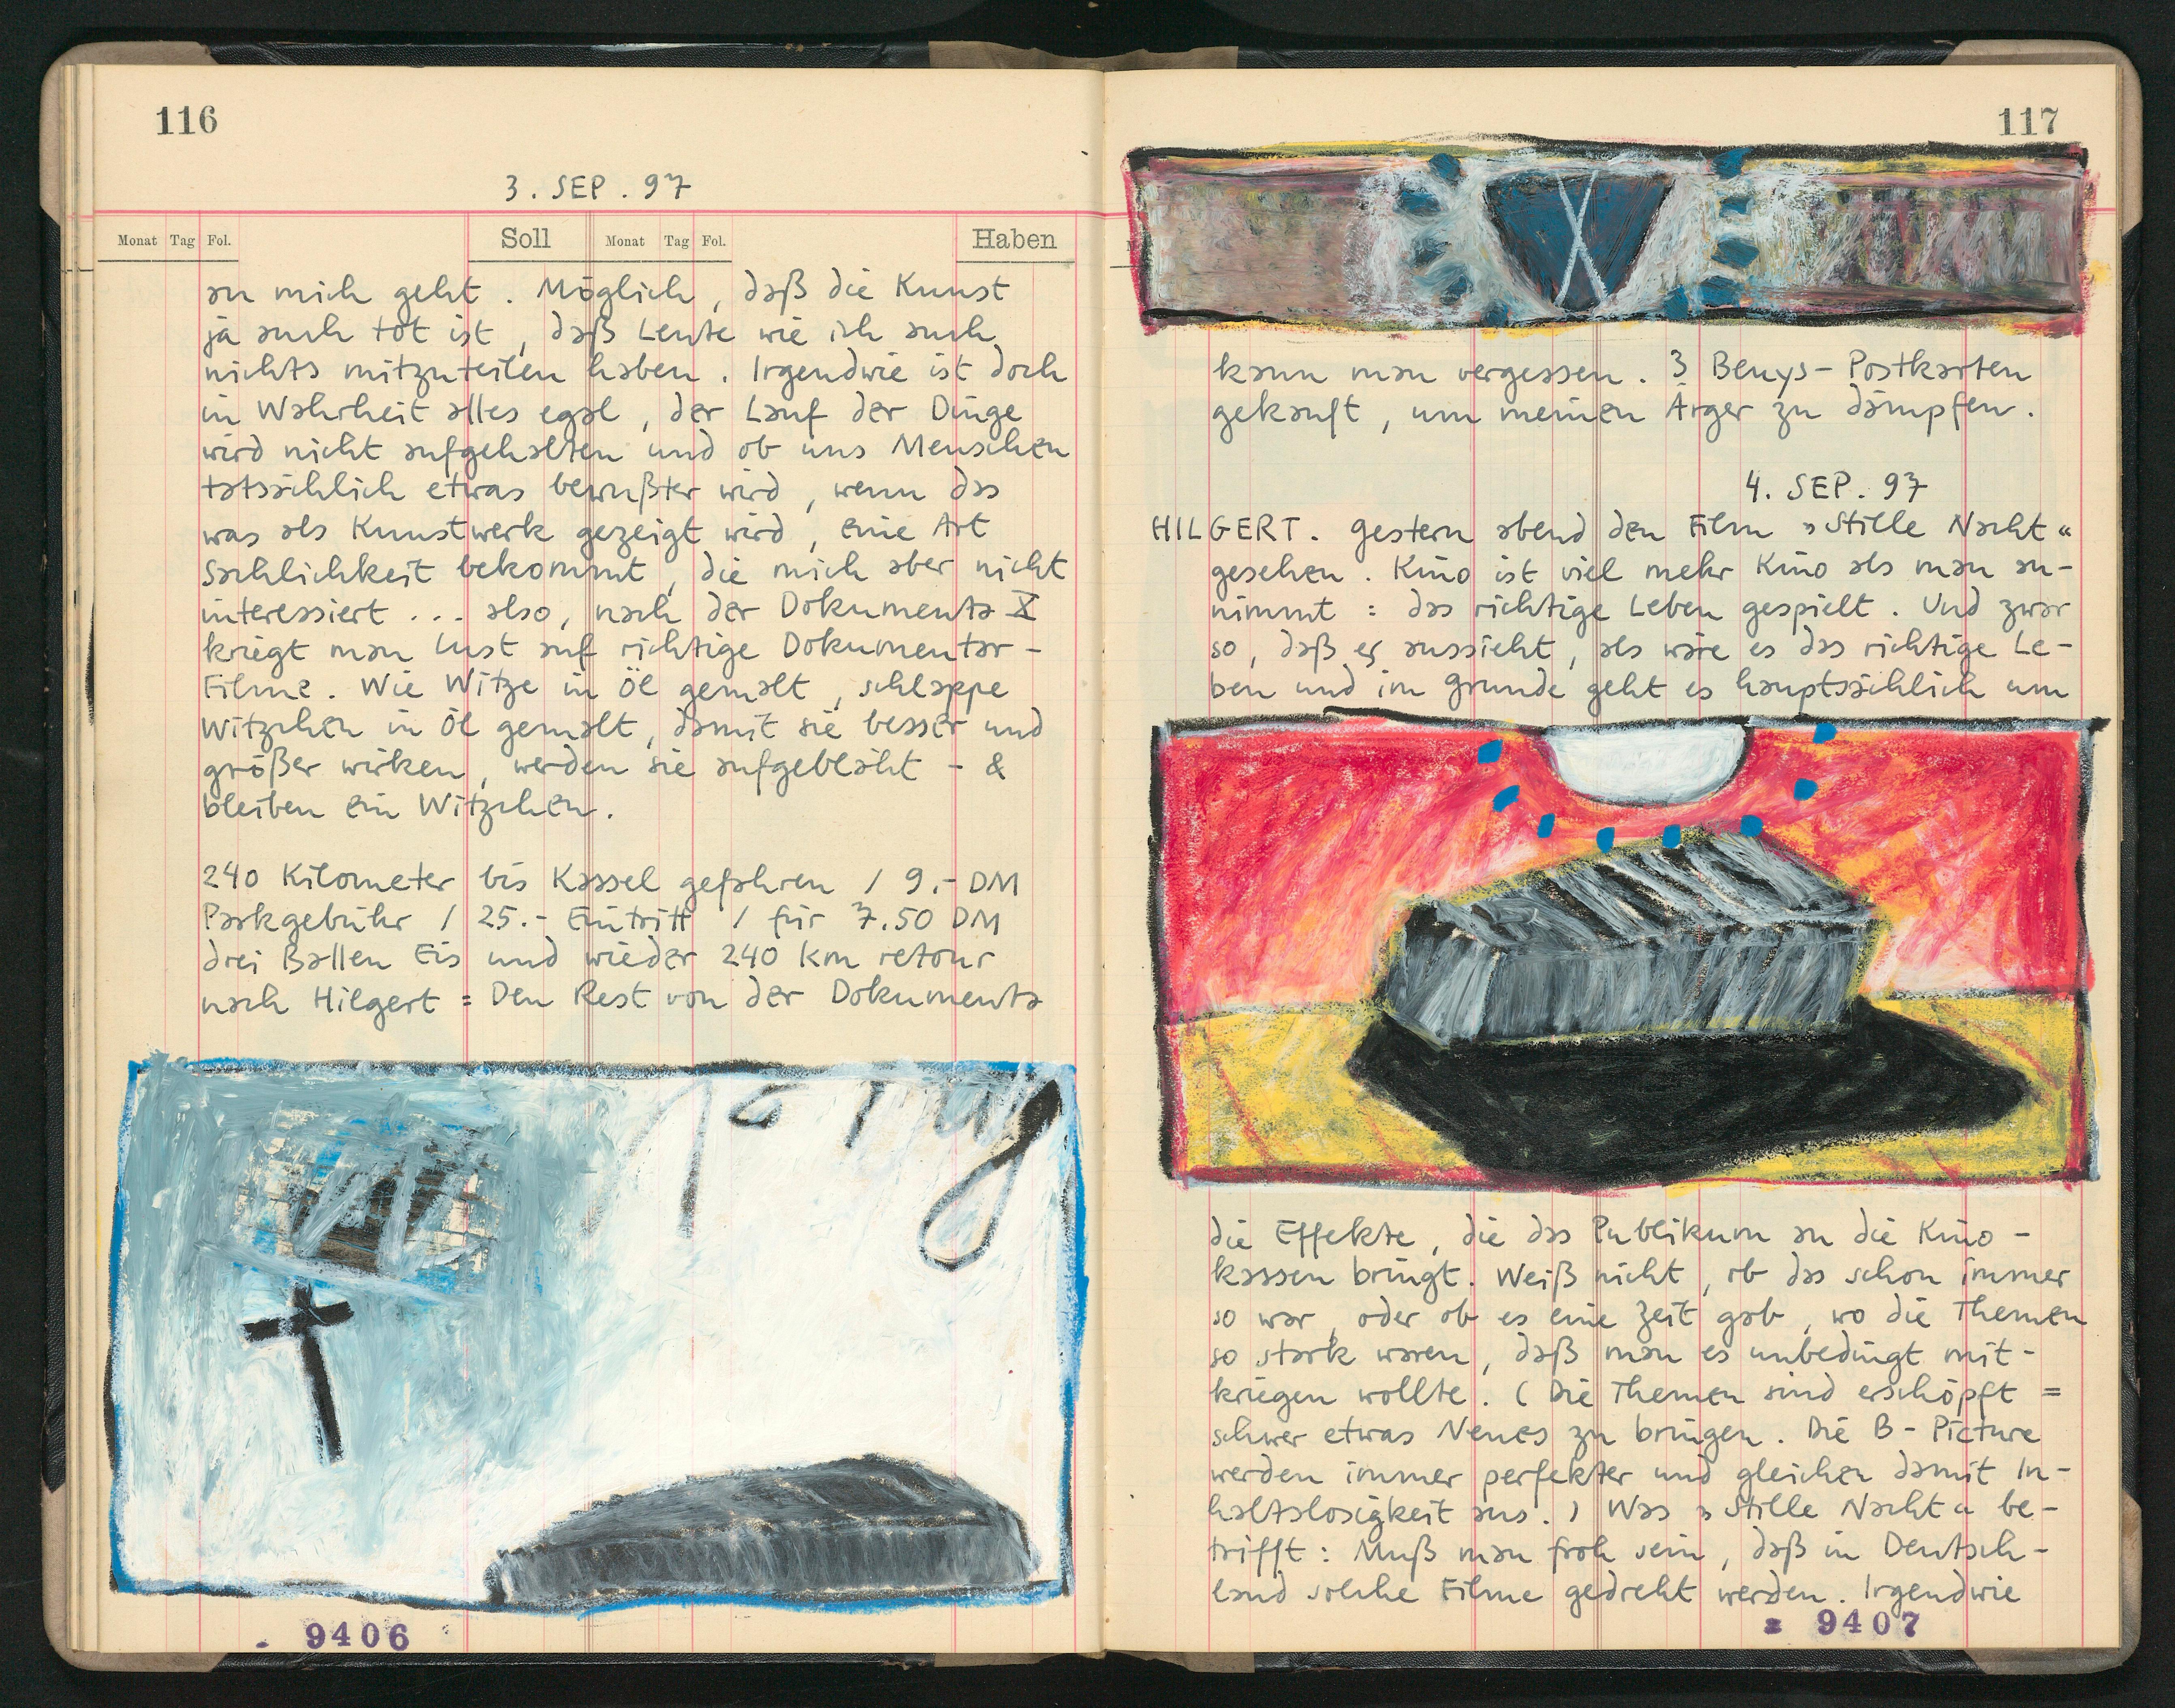 116
3. SEP. 97
Monat Tag Fol. Soll Monat Tag Fol. Haben
an mich geht. Möglich, daß die Kunst
ja auch tot ist, daß Leute wie ich auch
nichts mitzuteilen haben. Irgendwie ist doch
in Wahrheit alles egal, der Lauf der Dinge
wird nicht aufgehalten und ob uns Menschen
tatsächlich etwas bewußter wird, wenn das
was als Kunstwerk gezeigt wird, eine Art
Sachlichkeit bekommt, die mich aber nicht
interessiert ... also, nach der Dokumenta X
kriegt man Lust auf richtige Dokumentar-
Filme. Wie Witze in Öl gemalt, schlappe
Witzchen in Öl gemalt, damit sie besser und
größer wirken, werden sie aufgebläht - &
bleiben ein Witzchen.
240 Kilometer bis Kassel gefahren / 9.- DM
Parkgebühr / 25.- Eintritt / für 7.50 DM
drei Ballen Eis und wieder 240 km retour
nach Hilgert = Den Rest von der Dokumenta
9406
117
kann man vergessen. 3 Beuys-Postkarten
gekauft, um meinen Ärger zu dämpfen.
4. SEP. 97
HILGERT. Gestern abend den Film »Stille Nacht«
gesehen. Kino ist viel mehr Kino als man an-
nimmt: das richtige Leben gespielt. Und zwar
so, daß es aussieht, als wäre es das richtige Le-
ben und im Grunde geht es hauptsächlich um
die Effekte, die das Publikum an die Kino-
kassen bringt. Weiß nicht, ob das schon immer
so war, oder ob es eine Zeit gab, wo die Themen
so stark waren, daß man es unbedingt mit-
kriegen wollte. (Die Themen sind erschöpft =
schwer etwas Neues zu bringen. Die B-Picture
werden immer perfekter und gleichen damit In-
haltslosigkeit aus.) Was »Stille Nacht« be-
trifft: Muß man froh sein, daß in Deutsch-
land solche Filme gedreht werden. Irgendwie
9407